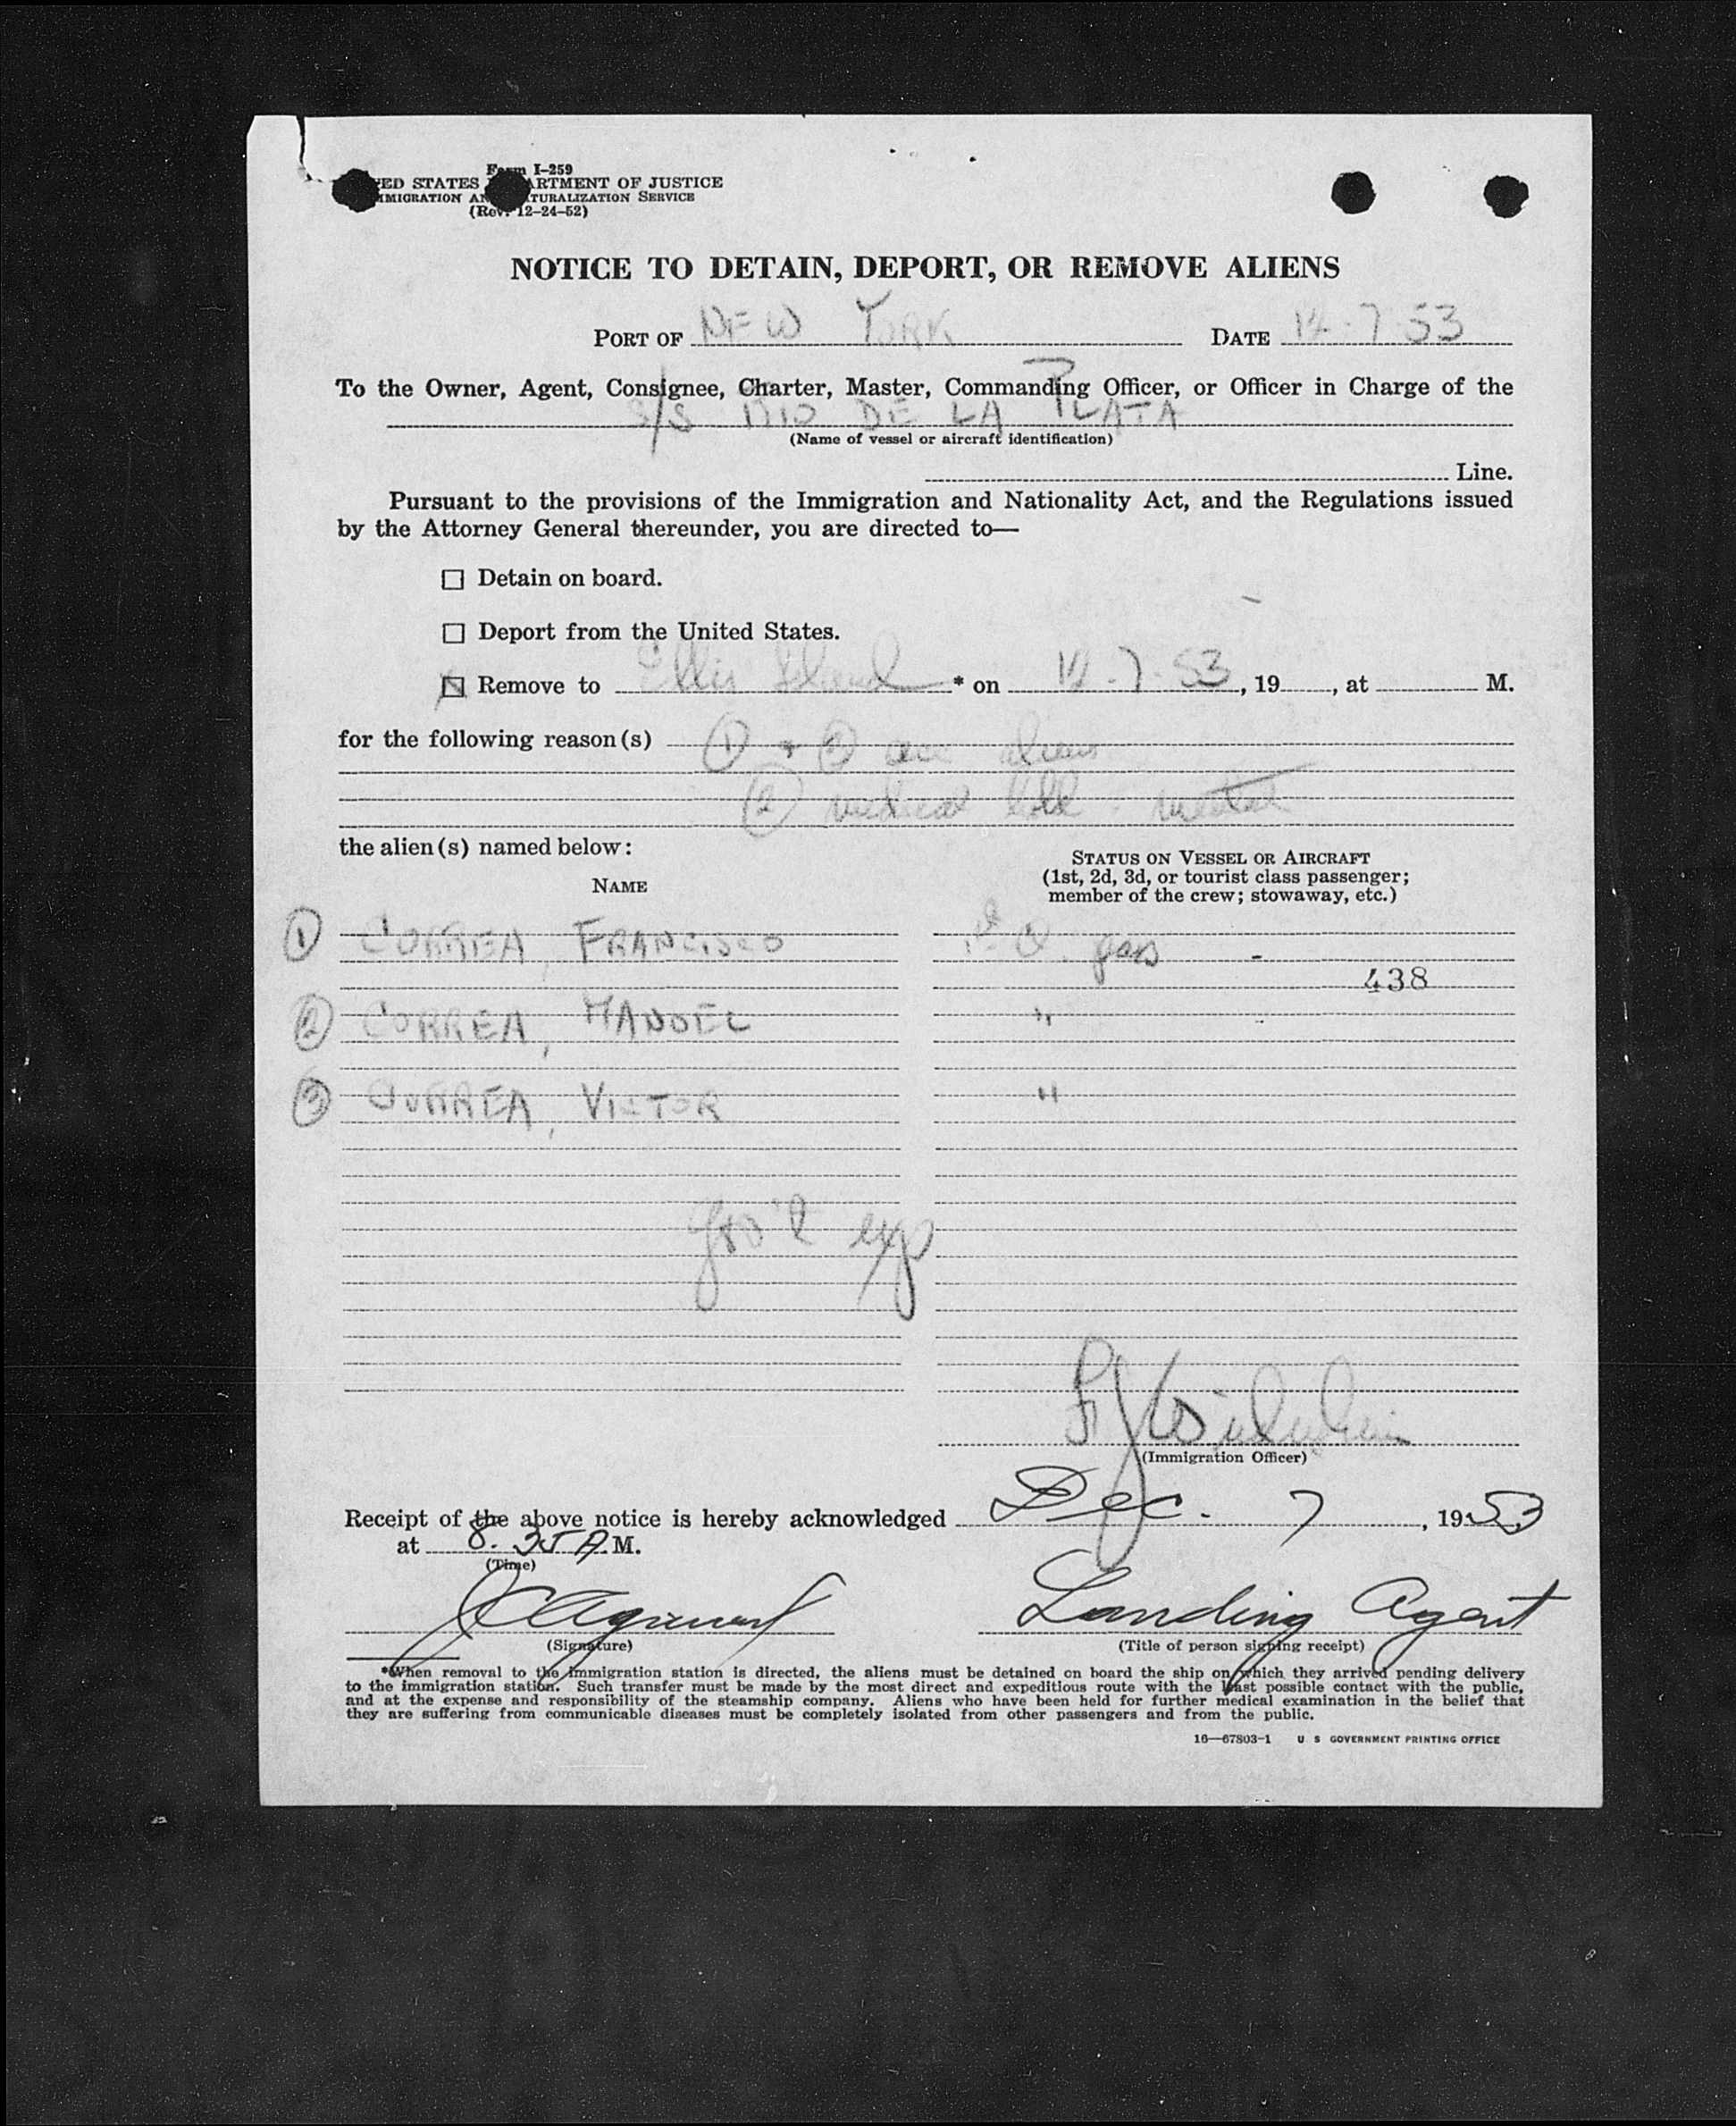 Form I-259
ED STATES ARTMENT OF JUSTICE
MMIGRATION AN TURALIZATION SERVICE
(Rev. 12-24-52)
NOTICE TO DETAIN, DEPORT, OR REMOVE ALIENS
PORT OF NEW YORK DATE 12-7-53
To the Owner, Agent, Consignee, Charter, Master, Commanding Officer, or Officer in Charge of the
S/S RIO DE LA PLATA
(Name of vessel or aircraft identification)
Line.
Pursuant to the provisions of the Immigration and Nationality Act, and the Regulations issued
by the Attorney General thereunder, you are directed to—
Detain on board.
Deport from the United States.
Remove to Ellis Island * on 12-7-53, 19, at M.
for the following reason(s) ① + ③ acc aliens
② medical hold - mental
the alien(s) named below:
NAME
STATUS ON VESSEL OR AIRCRAFT
(1st, 2d, 3d, or tourist class passenger;
member of the crew; stowaway, etc.)
① CORREA, FRANCISCO 1st Cl. pass -
438
② CORREA, MANOEL " -
③ CORREA, VICTOR "
Gov't exp
(Immigration Officer)
Receipt of the above notice is hereby acknowledged Dec. 7, 1953
at 8.35 A.M.
(Time)
Landing Agent
(Signature) (Title of person signing receipt)
*When removal to the immigration station is directed, the aliens must be detained on board the ship on which they arrived pending delivery
to the immigration station. Such transfer must be made by the most direct and expeditious route with the least possible contact with the public,
and at the expense and responsibility of the steamship company. Aliens who have been held for further medical examination in the belief that
they are suffering from communicable diseases must be completely isolated from other passengers and from the public.
16—67803-1 U S GOVERNMENT PRINTING OFFICE